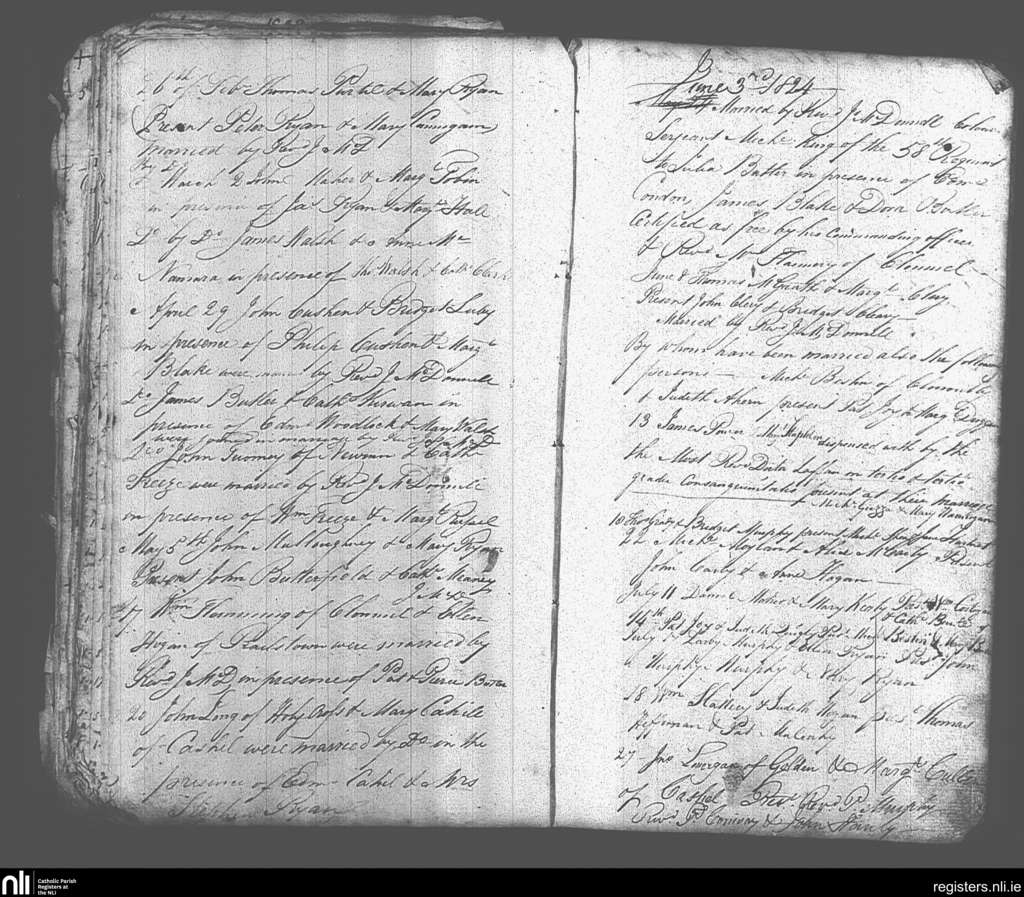 26th of Feb Thomas & Mary Ryan
Present Peter Ryan & Mary Cunnigam
married by Revd J McD
March 2 John Maher & Margt Tobin
in presence of Jas Ryan & Margt Hall
Do by Do James Walsh & Anne Mc
Namara in presence of Thos Walsh & Cathe
April 29 John Cushen & Bridget Luby
in presence of Philip Cushen & Margt
Blake were by Revd J McDonnell
Do James Butler & Cathe Kerwan in
presence of Edmd Woodlock & Mary Walsh
were joined in marriage by
Do John Twomey of Newinn & Cathe
Freeze were married by Revd J McDonnell
in presence of Wm Freeze & Margt Pursell
May 5th John Mullowney & Mary Ryan
Present John Butterfield & Cathe Meaney
J McD
17 Wm Flanning of Clonmel & Ellen
Hogan of Railstown were married by
Revd J McD in presence of Pat & Pierce Butler
20 John Long of Holy Cross & Mary Cahill
of Cashel were married by Do in the
presence of Edmd Cahil & Mrs
Ryan
June 3rd 1824
Married by Revd J McDonnell Colour
Sergeant Michl King of the 58th Regiment
to Julia Butler in presence of Edmd
Condon, James Blake & Dora Butler
Certified as free by his Commanding officer
& Revd Mr Flannery of Clonmel
June 8 Thomas McGrath & Margt Clery
Present John Clery & Bridget Cleary
Married by Revd J McDonnell
By whom have been married also the following
persons — Michl Boston of Clonoulty
& Judith Ahern present Pat Joy & Marg
13 James Power & dispensed with by the
the Most Revd Doctor Laffan in tertio & tertio
gradu Consanguinitatis present at their marriage
Michl & Mary Hannigan
10 & Bridget Murphy present Michl
22 Michl & Alice McCarthy Present
John Carty & Anne Hogan
July 11 Daniel Maher & Mary Keating Pat
& Cathe Butler
14th Pat Joy & Judith Present Mich Boston & Mary
July Murphy & Ellen Ryan Prest John
Murphy & Mary Ryan
18 Wm Slattery & Judith Hogan prest Thomas
Heffernan & Pat
27 Jno Lonergan of Golden & Margt
of Cashel Prest Revd P Murphy
Revd Conway & John
nli
Catholic Parish
Registers at
the NLI
registers.nli.ie